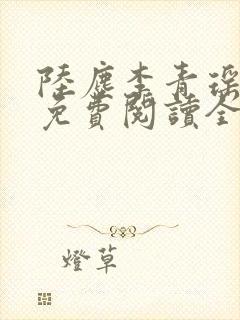 陸塵李青瑶
免費閱讀全
燈草